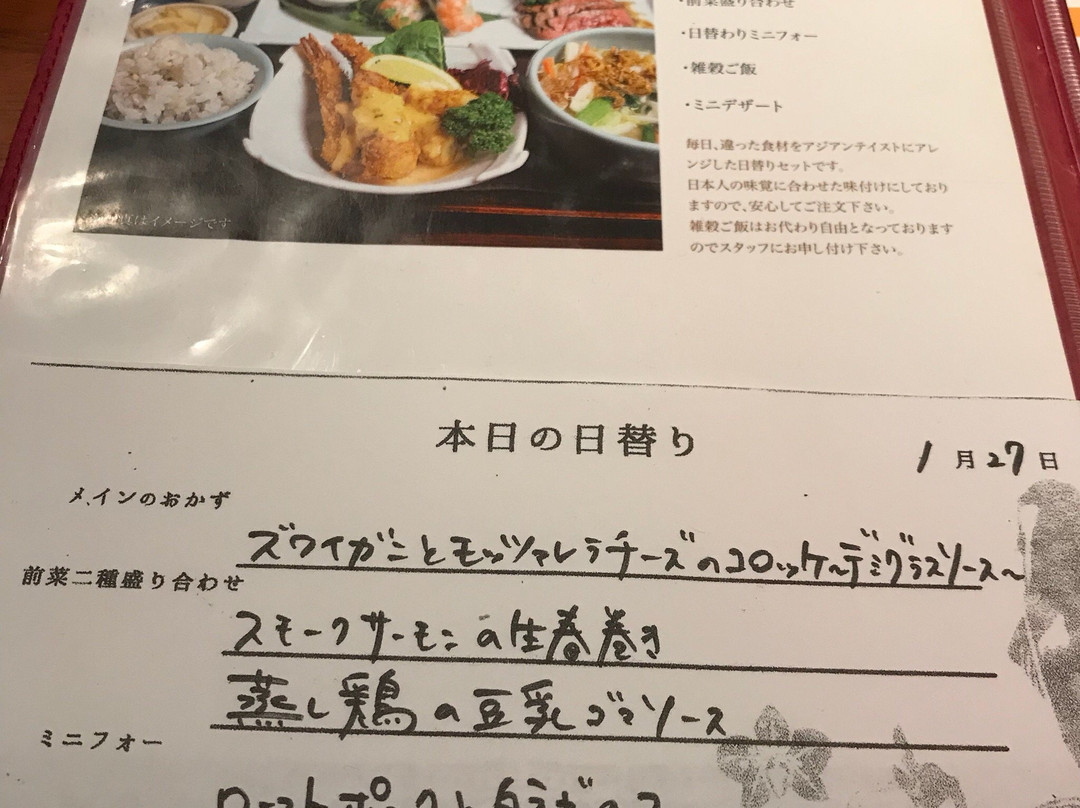 ・前菜盛り合わせ
・日替わりミニフォー
・雑穀ご飯
・ミニデザート
毎日、違った食材をアジアンテイストにアレ
ンジした日替りセットです。
日本人の味覚に合わせた味付けにしており
ますので、安心してご注文下さい。
雑穀ご飯はお代わり自由となっております
のでスタッフにお申し付け下さい。
はイメージです
本日の日替り
1月27日
メインのおかず
ズワイガニとモッツァレラチーズのコロッケ〜デミグラスソース〜
前菜二種盛り合わせ
スモークサーモンの生春巻き
蒸し鶏の豆乳ゴマソース
ミニフォー
ローストポークと